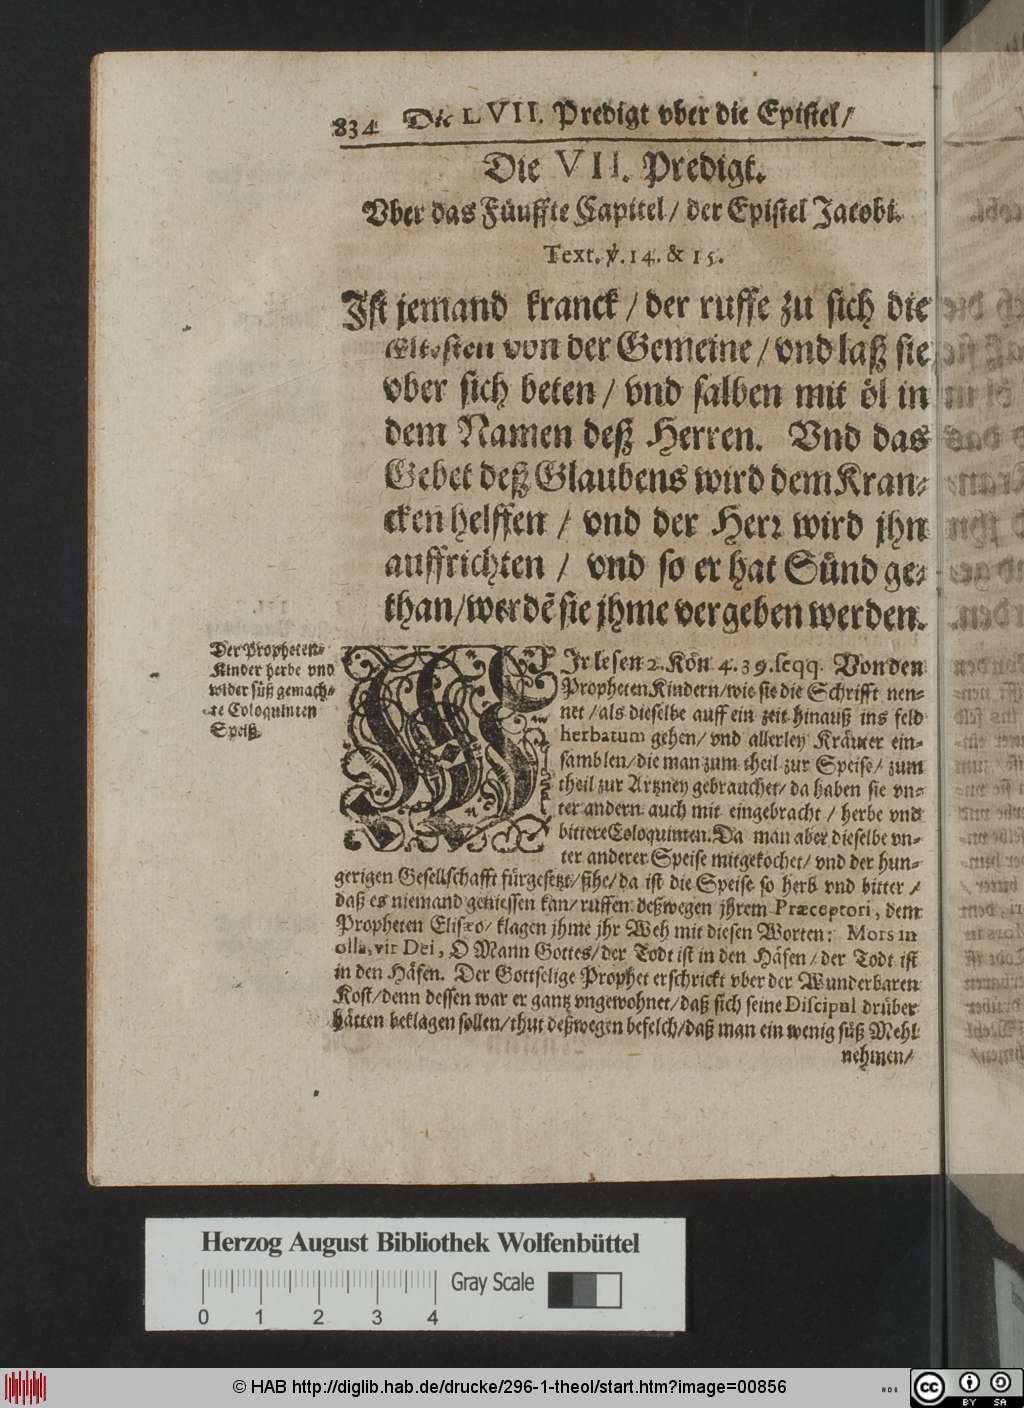 834 Die LVII. Predigt vber die Epistel/
Die VII. Predigt.
Vber das Fünffte Capitel/ der Epistel Jacobi.
Text. ℣. 14. & 15.
Jst jemand kranck/ der ruffe zu sich die
Eltesten von der Gemeine/ vnd laß sie
vber sich beten/ vnd salben mit öl in
dem Namen deß Herren. Vnd das
Gebet deß Glaubens wird dem Kran-
cken helffen/ vnd der Herr wird jhn
auffrichten/ vnd so er hat Sünd ge-
than/ werdẽ sie jhme vergeben werden.
Der Propheten-
Kinder herbe vnd
wider süß gemach-
te Coloquinten
Speiß.
WJr lesen 2. Kön 4. 39. seqq. Von den
Propheten Kindern/ wie sie die Schrifft nen-
net/ als dieselbe auff ein zeit hinauß ins feld
herbatum gehen/ vnd allerley Kräuter ein-
samblen/ die man zum theil zur Speise/ zum
theil zur Artzney gebrauchet/ da haben sie vn-
ter andern auch mit eingebracht/ herbe vnd
bittere Coloquinten. Da man aber dieselbe vn-
ter anderer Speise mitgekochet/ vnd der hun-
gerigen Gesellschafft fürgesetzt/ sihe/ da ist die Speise so herb vnd bitter/
daß es niemand geniessen kan/ ruffen deßwegen jhrem Præceptori, dem
Propheten Elisæo/ klagen jhme jhr Weh mit diesen Worten: Mors in
olla, vir Dei, O Mann Gottes/ der Todt ist in den Häfen/ der Todt ist
in den Häfen. Der Gottselige Prophet erschrickt vber der Wunderbaren
Kost/ denn dessen war er gantz vngewohnet/ daß sich seine Discipul drüber
hätten beklagen sollen/ thut deßwegen befelch/ daß man ein wenig süß Mehl
nehmen/
Herzog August Bibliothek Wolfenbüttel
Gray Scale
0 1 2 3 4
© HAB http://diglib.hab.de/drucke/296-1-theol/start.htm?image=00856
cc BY SA